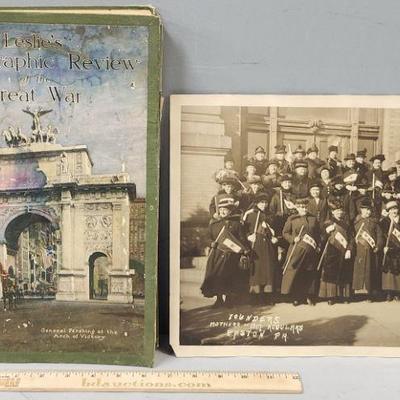 Leslie's
graphic Review
of the
Great War
General Pershing at the
Arch of Victory
FOUNDERS
MOTHERS WAR REGULARS
EASTON PA.
hdauctions.com